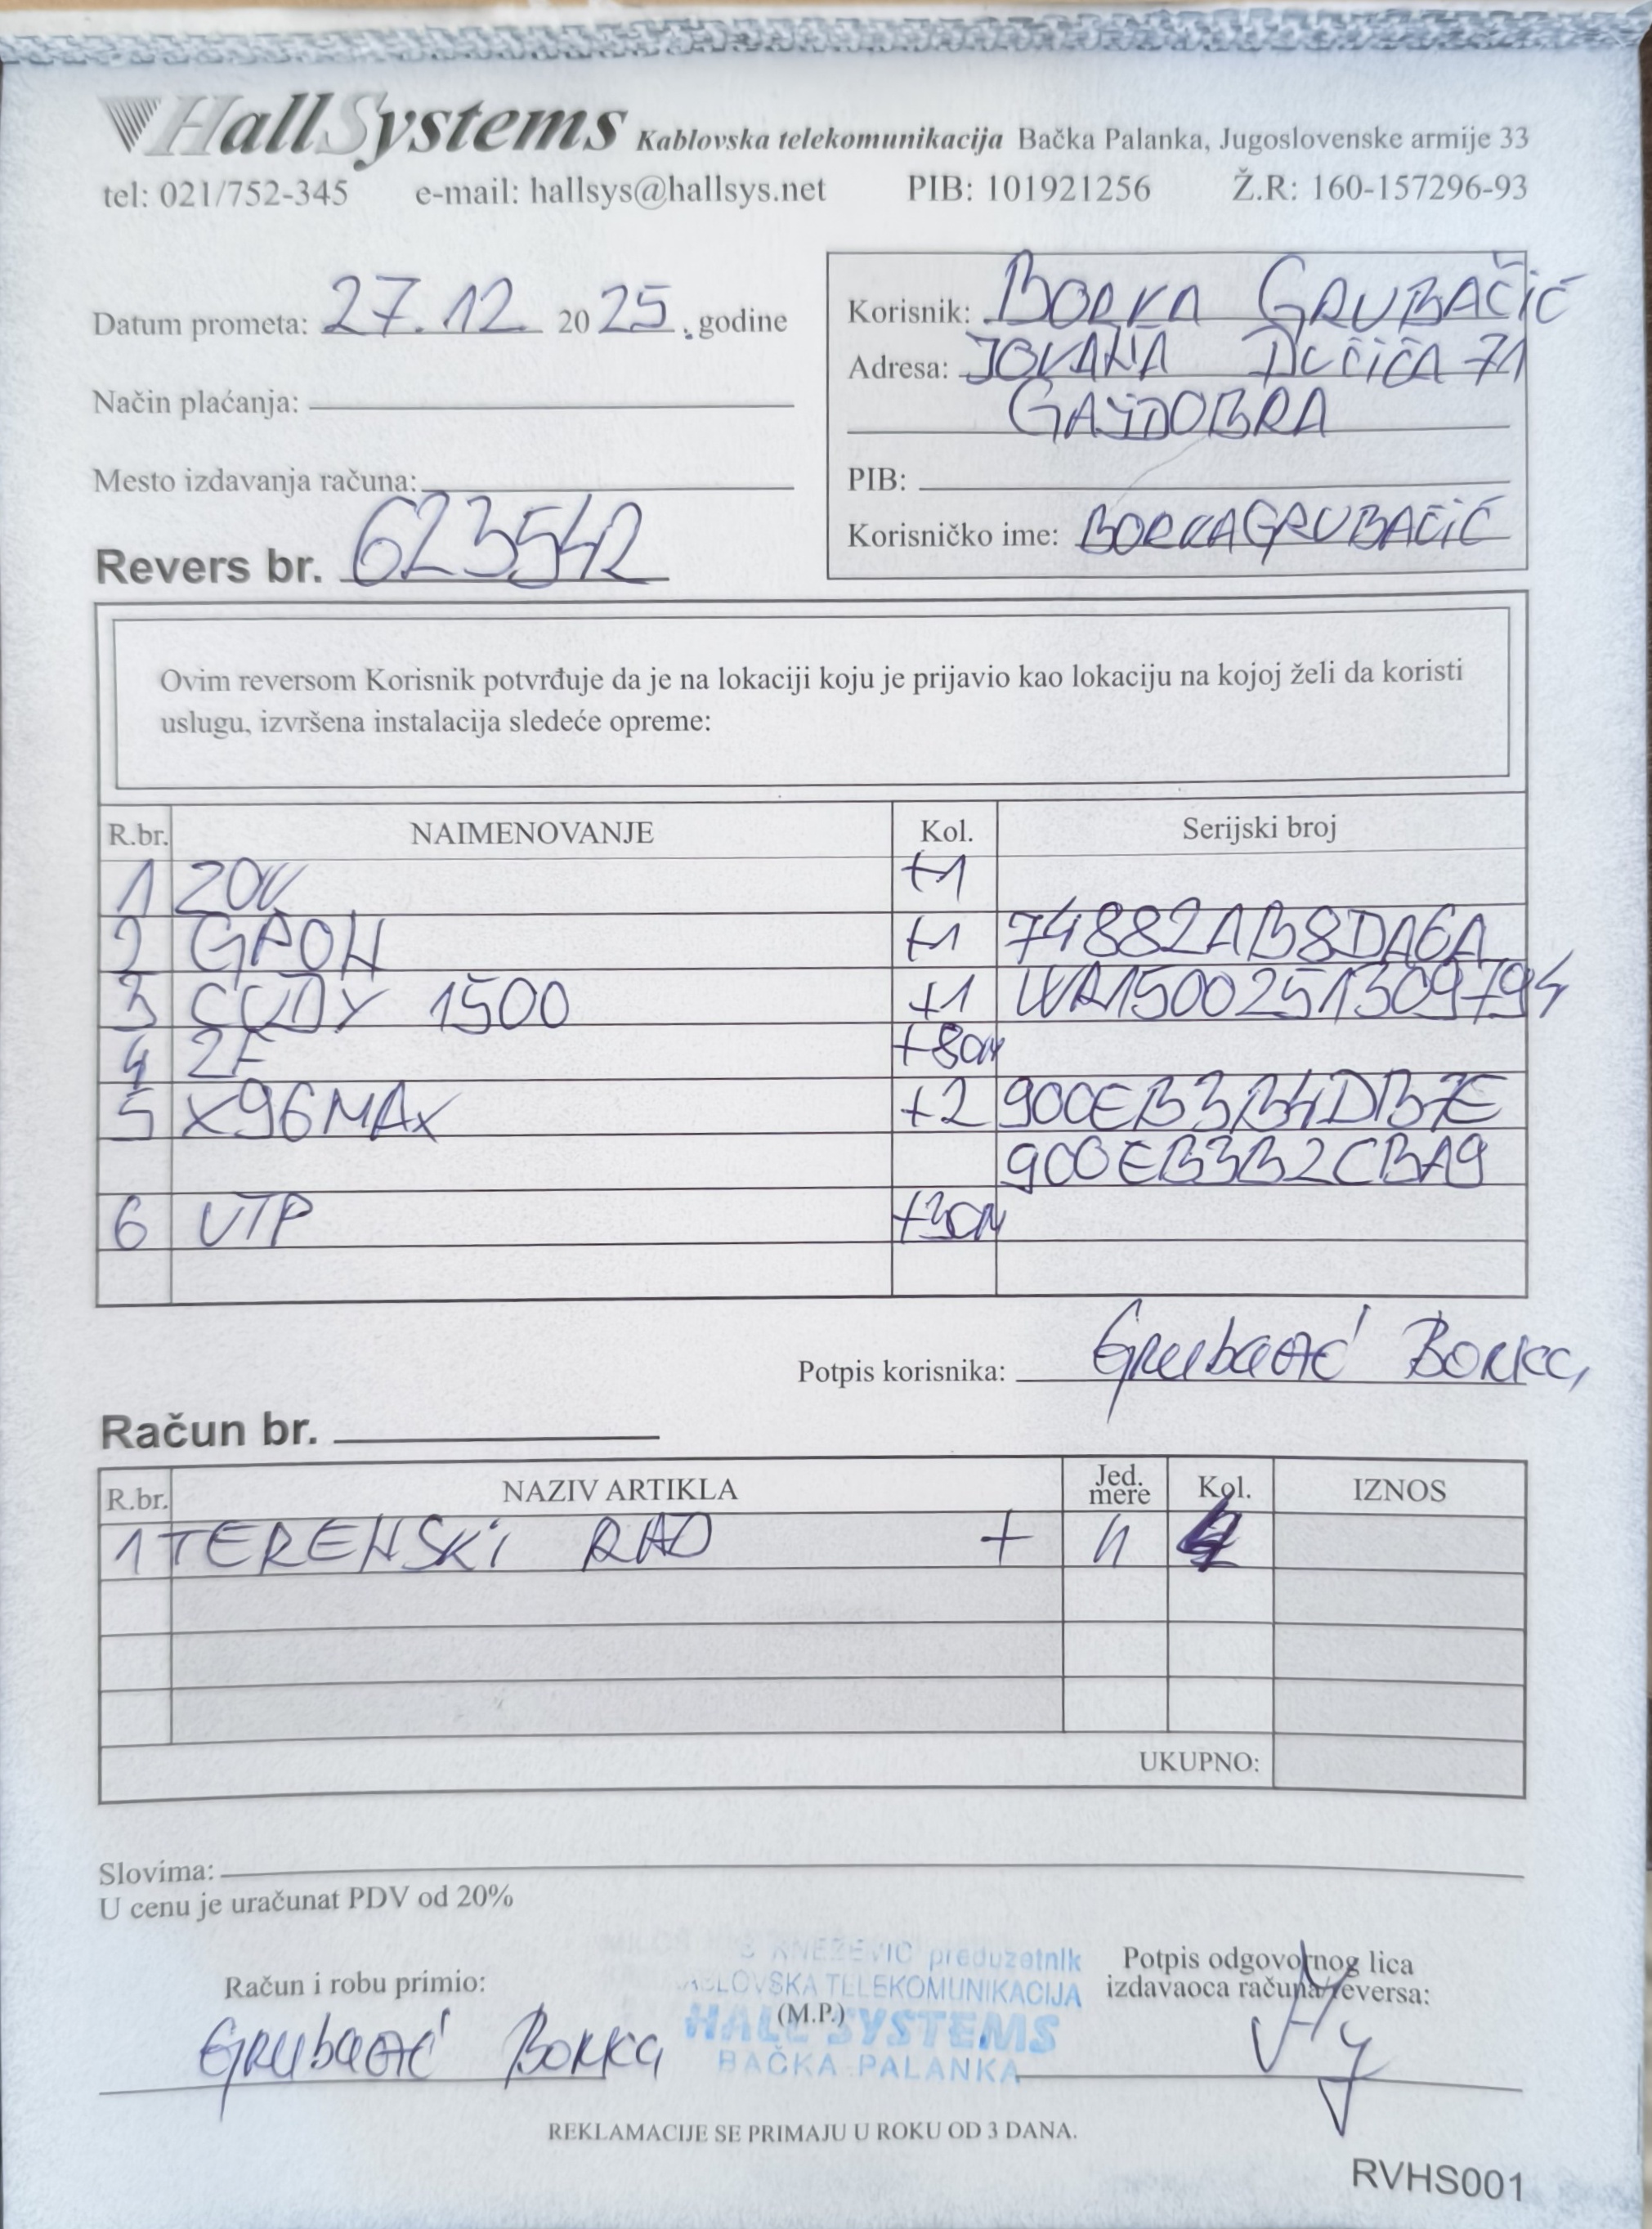 HallSystems Kablovska telekomunikacija Bačka Palanka, Jugoslovenske armije 33
tel: 021/752-345 e-mail: hallsys@hallsys.net PIB: 101921256 Ž.R: 160-157296-93
Datum prometa: 27.12. 2025. godine
Način plaćanja:
Mesto izdavanja računa:
Revers br. 623542
Korisnik: BORKA GRUBAČIĆ
Adresa: JOVANA DUČIĆA 71
GAJDOBRA
PIB:
Korisničko ime: BORKAGRUBAČIĆ
Ovim reversom Korisnik potvrđuje da je na lokaciji koju je prijavio kao lokaciju na kojoj želi da koristi
uslugu, izvršena instalacija sledeće opreme:
R.br. NAIMENOVANJE Kol. Serijski broj
1 ZOK +1
2 GPON +1 74882AB8DA6A
3 CUDY 1500 +1 WR1500251309794
4 2F +80m
5 X96MAX +2 900EB3B4DB7E
900EB3B2CBA9
6 UTP +30m
Potpis korisnika: Grubačić Borka
Račun br.
R.br. NAZIV ARTIKLA Jed. mere Kol. IZNOS
1 TERENSKI RAD + h 4
UKUPNO:
Slovima:
U cenu je uračunat PDV od 20%
Račun i robu primio:
Grubačić Borka
KNEŽEVIĆ preduzetnik
KABLOVSKA TELEKOMUNIKACIJA
(M.P.)
HALL SYSTEMS
BAČKA PALANKA
Potpis odgovornog lica
izdavaoca računa/reversa:
REKLAMACIJE SE PRIMAJU U ROKU OD 3 DANA.
RVHS001